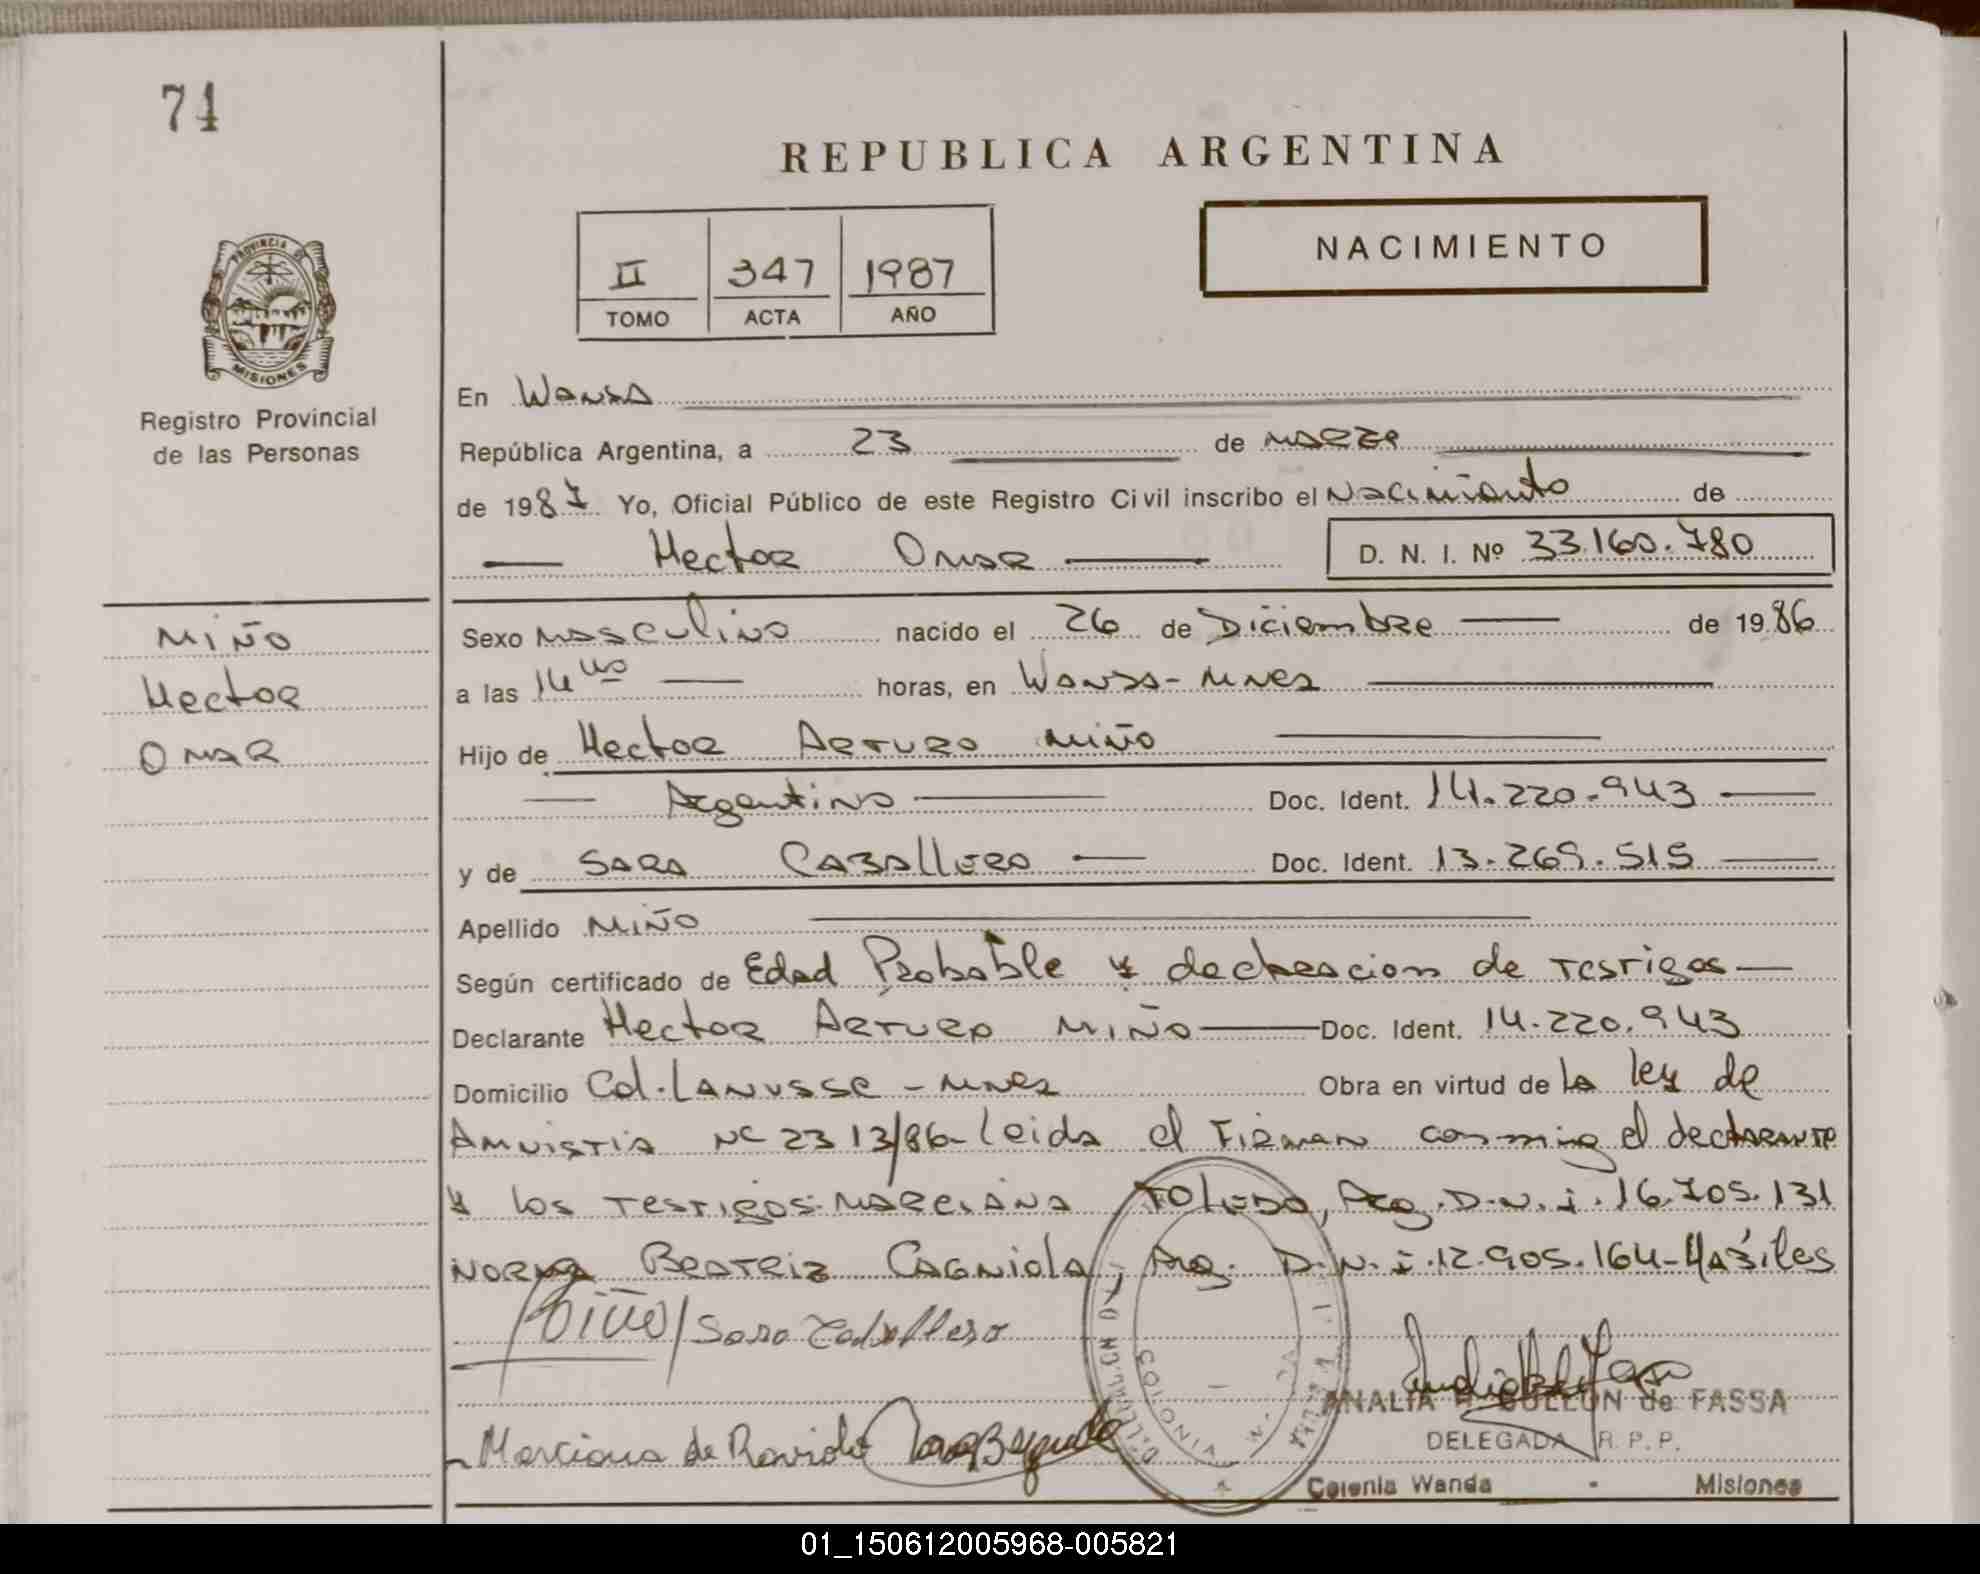 74
REPUBLICA ARGENTINA
NACIMIENTO
II 347 1987
TOMO ACTA AÑO
PROVINCIA DE
MISIONES
Registro Provincial
de las Personas
En Wanda
República Argentina, a 23 de marzo
de 1987 Yo, Oficial Público de este Registro Civil inscribo el Nacimiento de
Hector Omar D. N. I. Nº 33.160.780
MIÑO
Hector
Omar
Sexo masculino nacido el 26 de Diciembre de 1986
a las 14 horas, en Wanda - Mnes
Hijo de Hector Arturo Miño
Argentino Doc. Ident. 14.220.943
y de SARA CABALLERO Doc. Ident. 13.269.515
Apellido MIÑO
Según certificado de Edad Probable y declaracion de testigos
Declarante Hector Arturo Miño Doc. Ident. 14.220.943
Domicilio Col. Lanusse - Mnes Obra en virtud de la ley de
Amnistia Nº 2313/86 - leida el Firman conmigo el declarante
y los testigos: Marciana Toledo, Arg. D.N.i. 16.705.131
Norma Beatriz Cagniola, Arg. D.N.i. 12.905.164 - Habiles
Miño / Sara Caballero
Marciana de
ANALIA H. GULLON de FASSA
DELEGADA R. P. P.
Colonia Wanda - Misiones
01_150612005968-005821